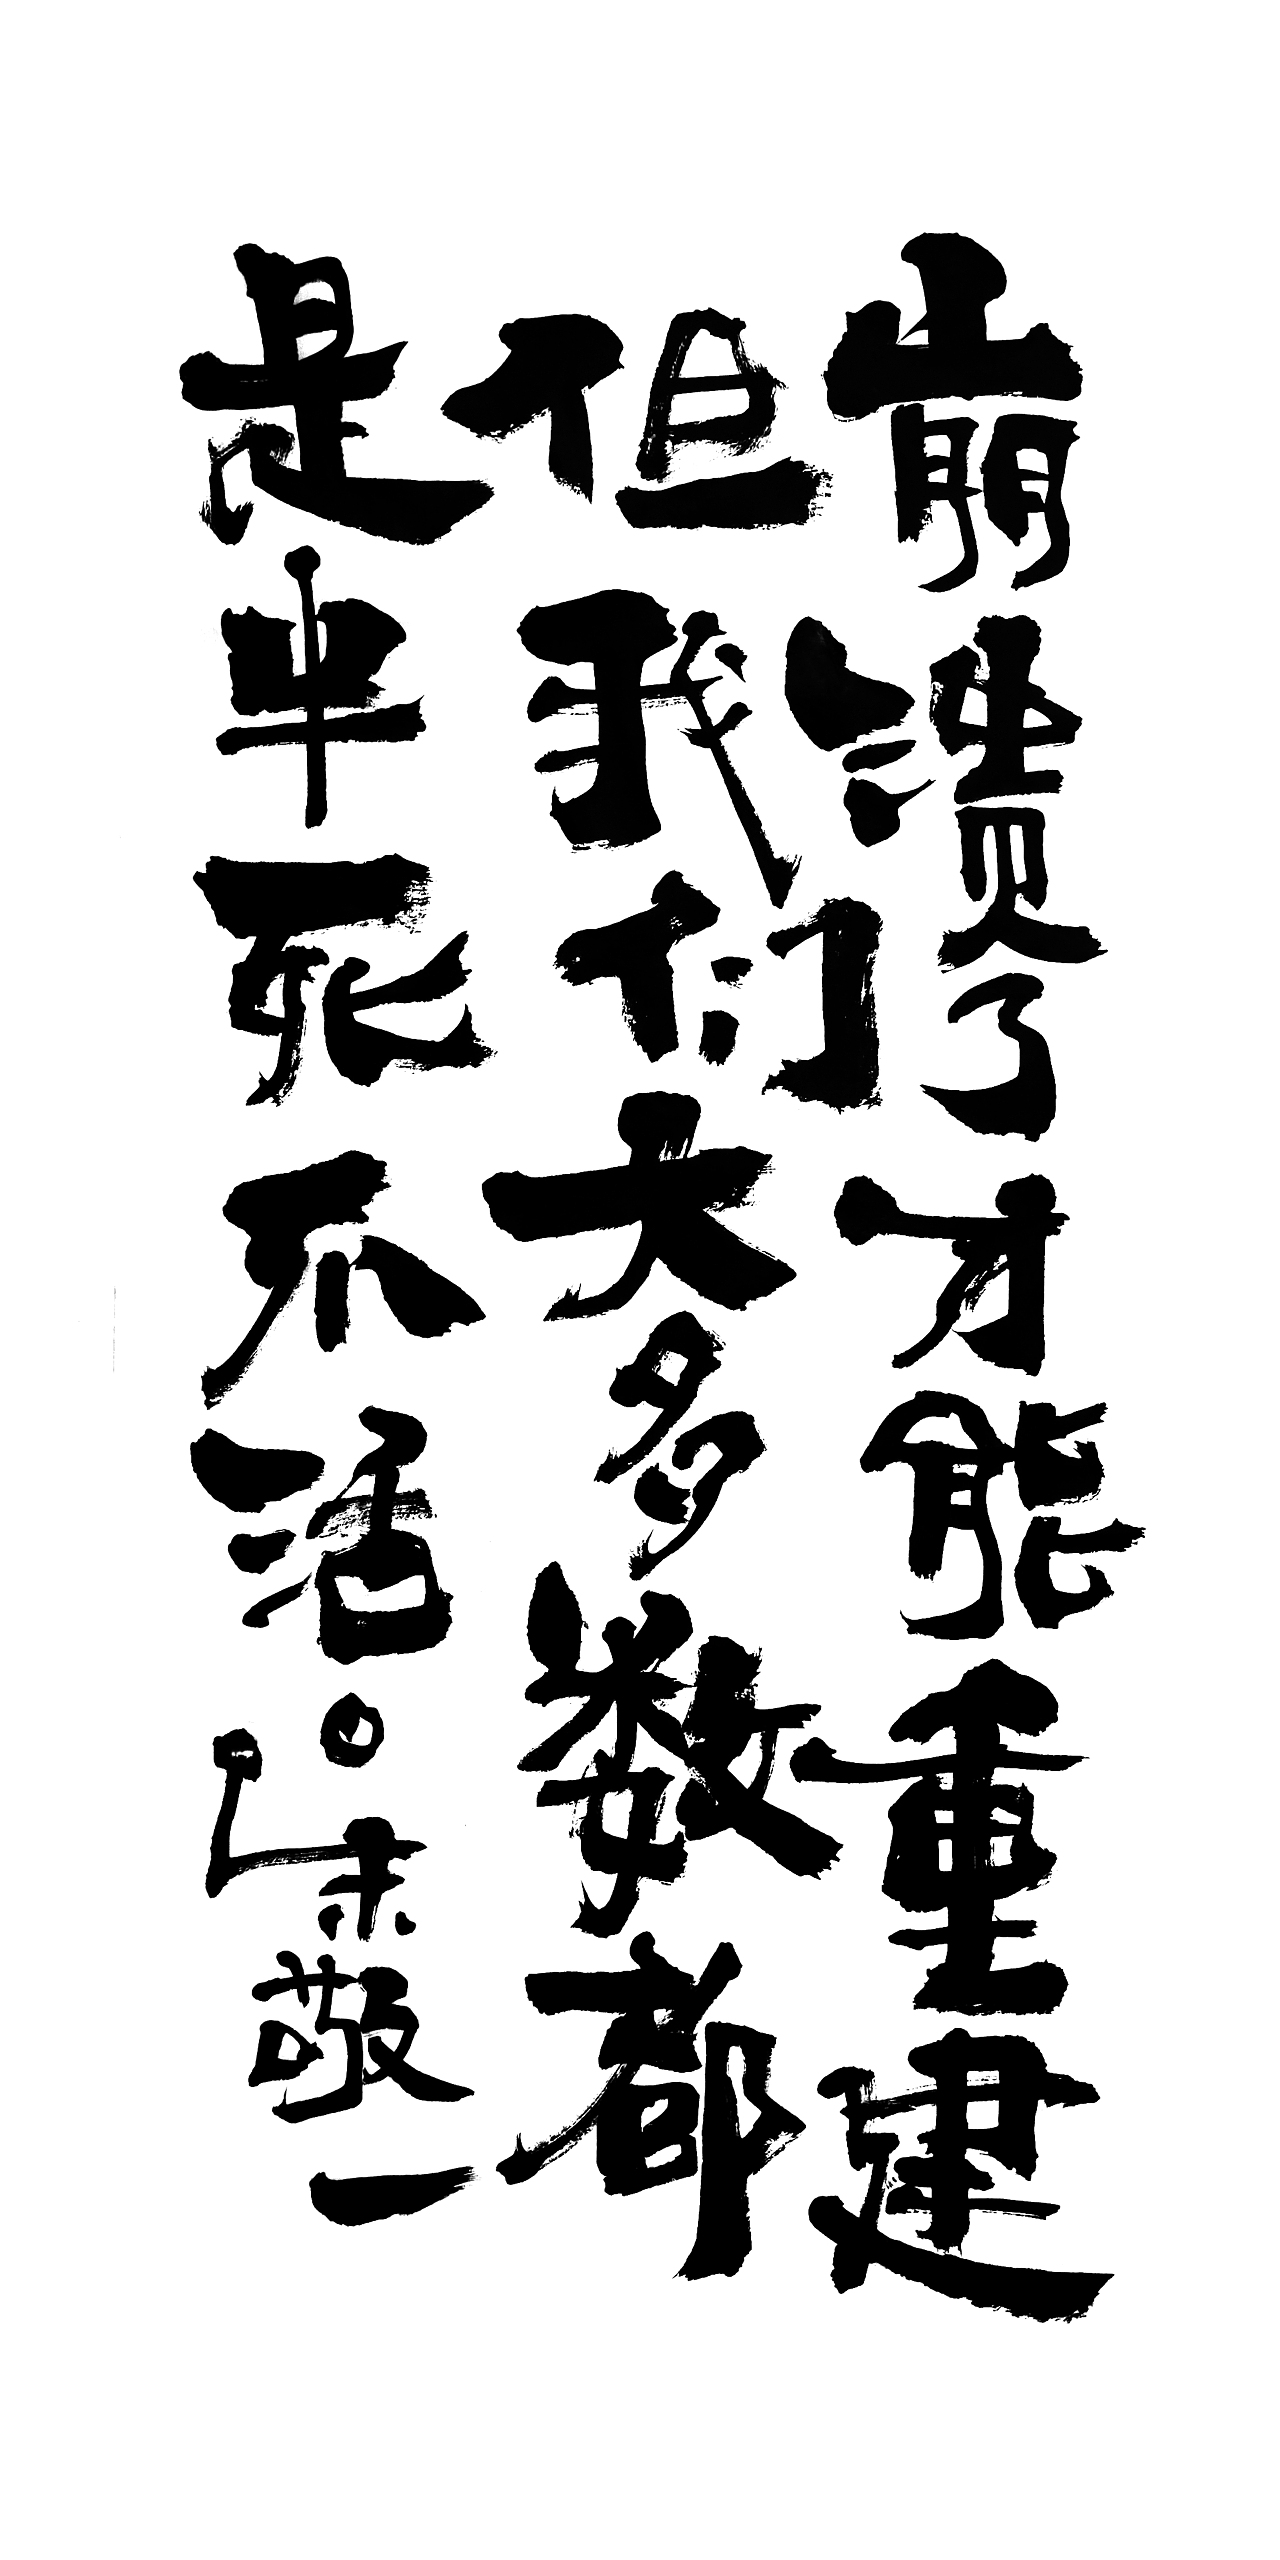 崩溃了才能重建
但我们大多数都
是半死不活。朱敬一